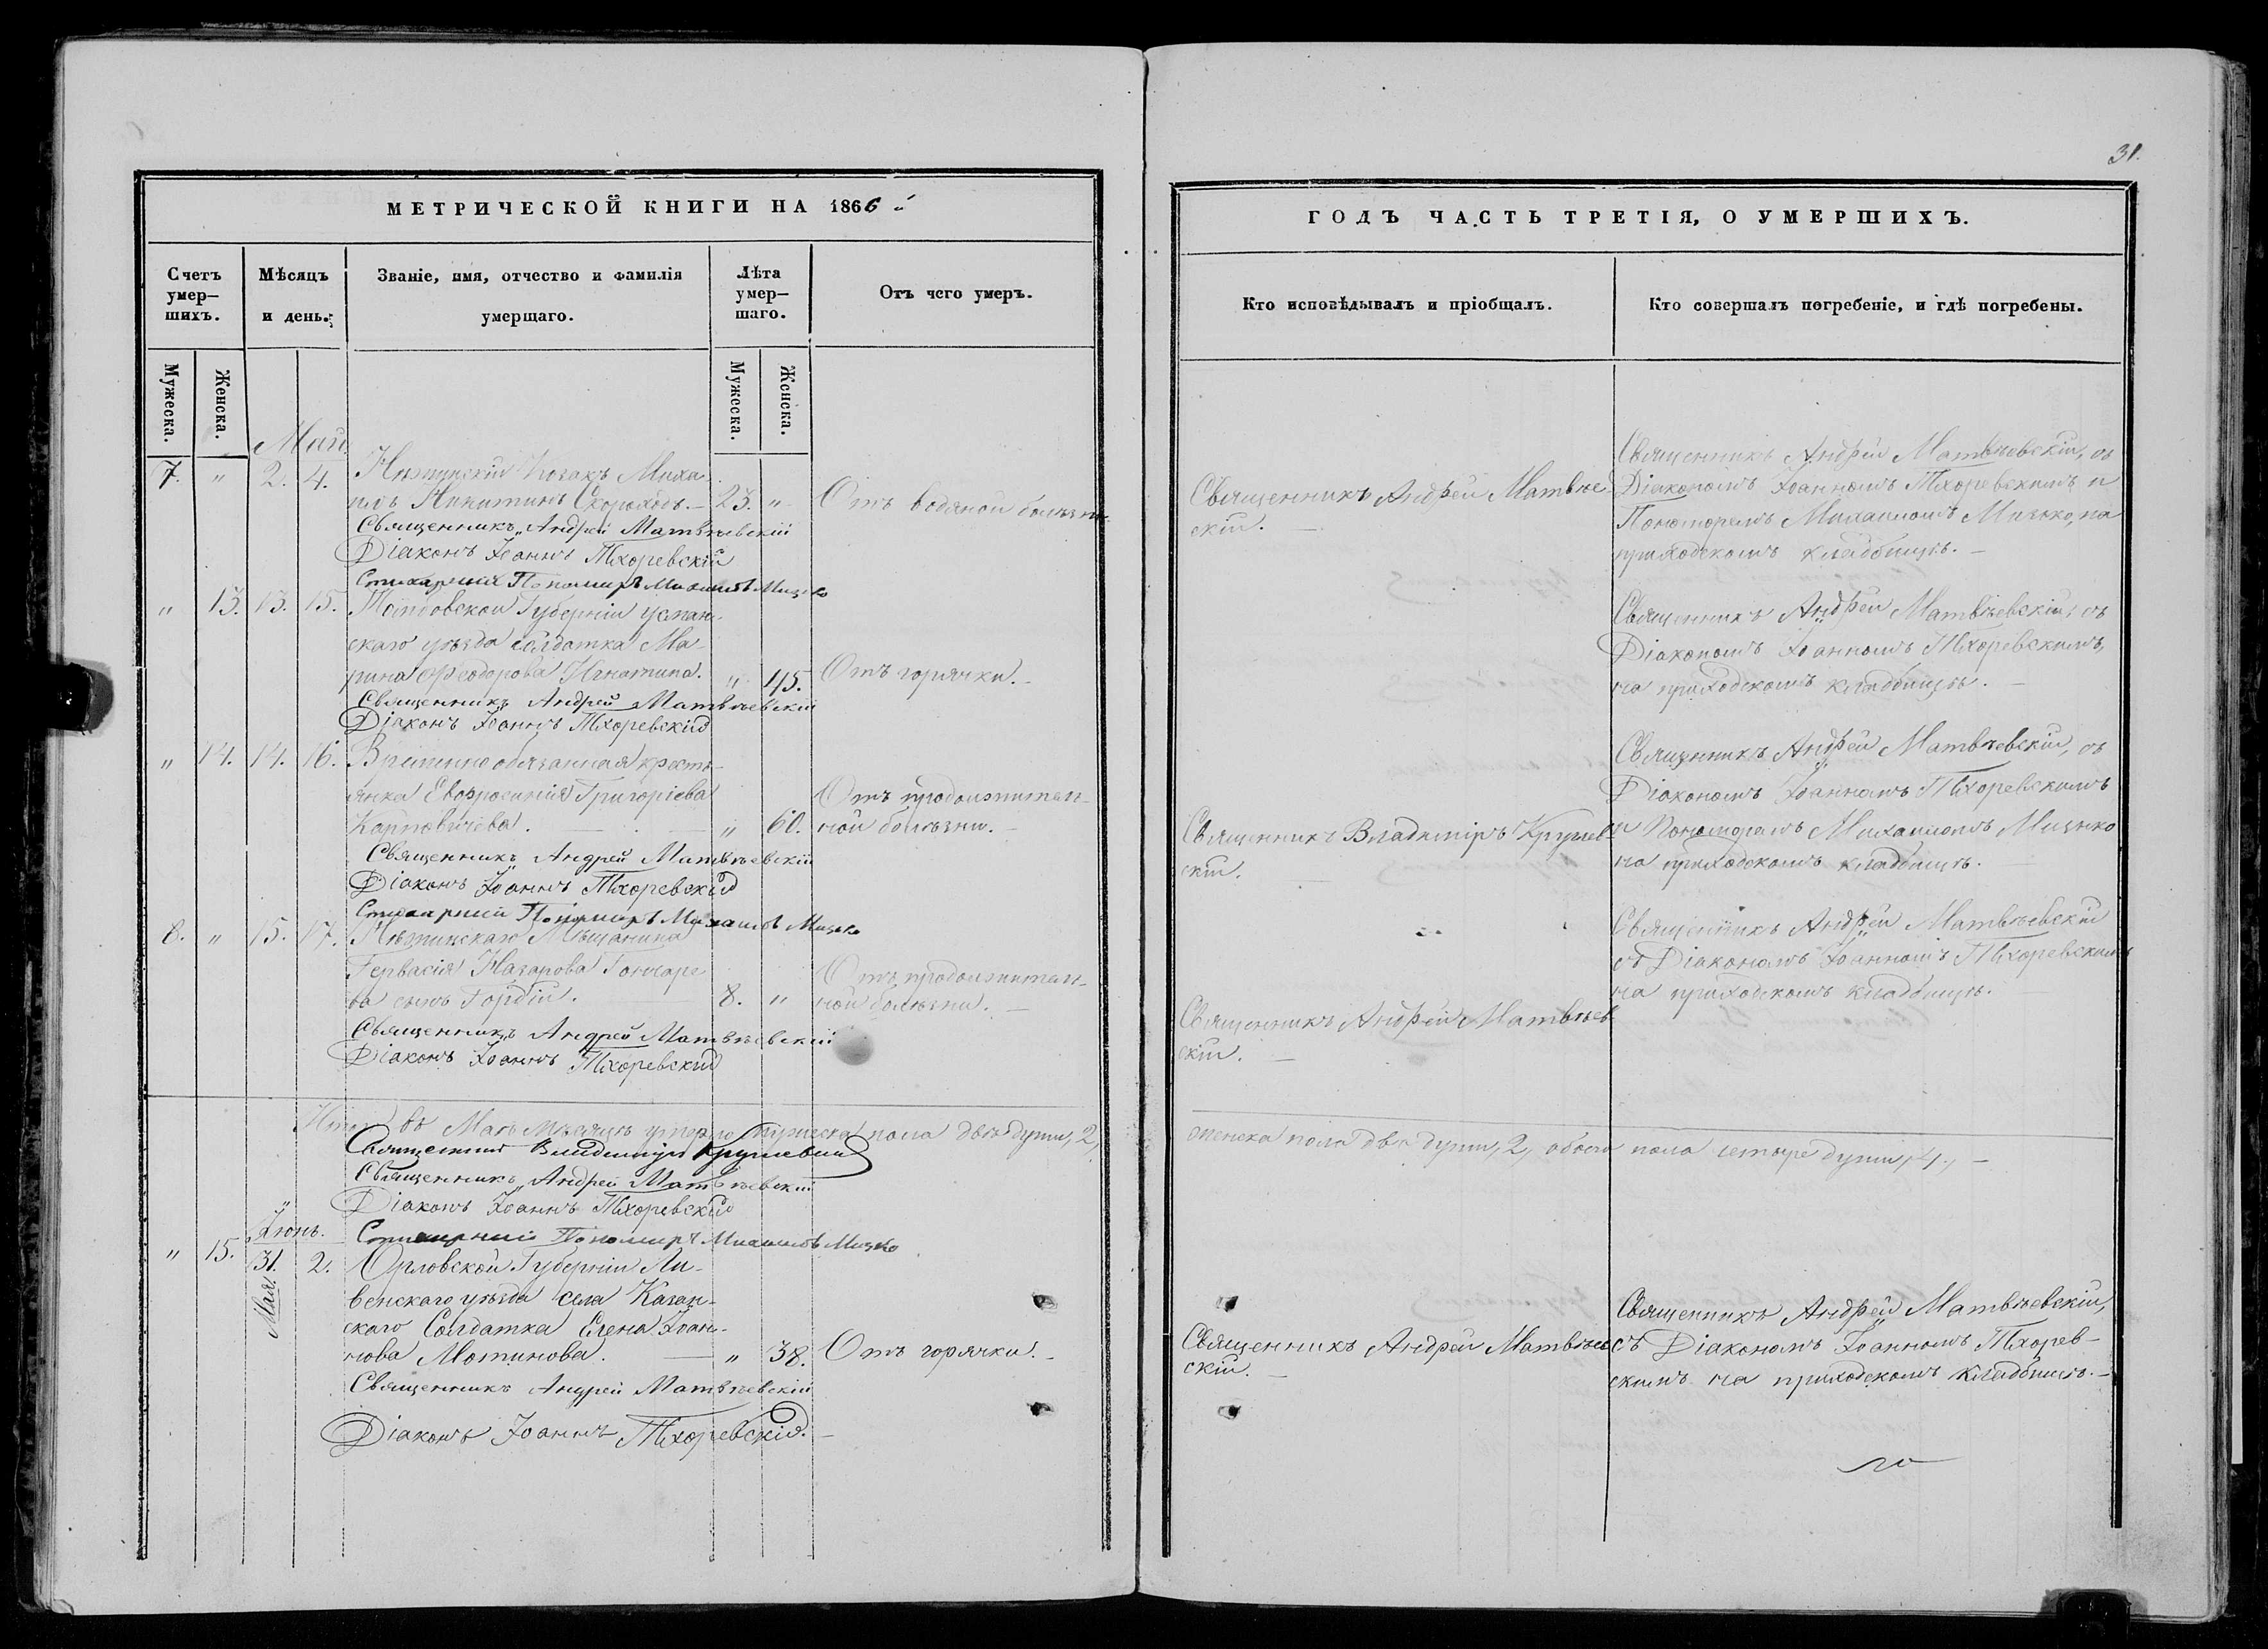 31.
МЕТРИЧЕСКОЙ КНИГИ НА 1866й
ГОДЪ ЧАСТЬ ТРЕТІЯ, О УМЕРШИХЪ.
Счетъ умер–шихъ.
Мѣсяцъ и день.
Званіе, имя, отчество и фамилія умершаго.
Лѣта умер–шаго.
Отъ чего умеръ.
Кто исповѣдывалъ и пріобщалъ.
Кто совершалъ погребеніе, и гдѣ погребены.
Мужеска.
Женска.
Мужеска.
Женска.
Май
7. " 2. 4. Нѣжинскій Козакъ Миха-
илъ Никитинъ Скороходъ.— 23. " Отъ водяной болѣзни.
Священникъ Андрей Матвѣевскій
Діаконъ Іоаннъ Тхоревскій
Стихарный Пономарь Михаилъ Мицко
Священникъ Андрей Матвѣе
скій. —
Священникъ Андрей Матвѣевскій, съ
Діакономъ Іоанномъ Тхоревскимъ и
Пономаремъ Михаиломъ Мицко, на
приходскомъ кладбищѣ. —
" 13. 13. 15. Тамбовской Губерніи Усман-
скаго уѣзда солдатка Ма-
рина Феодорова Игнатина. " 45. Отъ горячки. —
Священникъ Андрей Матвѣевскій
Діаконъ Іоаннъ Тхоревскій
Священникъ Андрей Матвѣевскій, съ
Діакономъ Іоанномъ Тхоревскимъ,
на приходскомъ кладбищѣ. —
" 14. 14. 16. Временно обязанная кресть-
янка Евфросинія Григоріева
Карповичева. — " 60. Отъ продолжитель-
ной болѣзни. —
Священникъ Андрей Матвѣевскій
Діаконъ Іоаннъ Тхоревскій
Стихарный Пономарь Михаилъ Мицко
Священникъ Владиміръ Крушев-
скій.
Священникъ Андрей Матвѣевскій, съ
Діакономъ Іоанномъ Тхоревскимъ
и Пономаремъ Михаиломъ Мицко
на приходскомъ кладбищѣ. —
8. " 15. 17. Нѣжинскаго Мѣщанина
Гервасія Назарова Гончаре
ва сынъ Гордій. 8. " Отъ продолжитель-
ной болѣзни. —
Священникъ Андрей Матвѣевскій
Діаконъ Іоаннъ Тхоревскій
Священникъ Андрей Матвѣев
скій. —
Священникъ Андрей Матвѣевскій
съ Діакономъ Іоанномъ Тхоревскимъ
на приходскомъ кладбищѣ. —
Итого въ Маѣ Мѣсяцѣ умерло мужеска пола двѣ души, 2,
женска пола двѣ души, 2, обоего пола четыре души, 4, —
Священникъ Владиміръ Крушевскій
Священникъ Андрей Матвѣевскій
Діаконъ Іоаннъ Тхоревскій
Стихарный Пономарь Михаилъ Мицко
Іюнь.
" 15. 31. Мая. 2. Орловской Губерніи Ли-
венскаго уѣзда села Казан-
скаго Солдатка Елена Іоан-
нова Мотинова. — " 38. Отъ горячки. —
Священникъ Андрей Матвѣевскій
Діаконъ Іоаннъ Тхоревскій. —
Священникъ Андрей Матвѣев
скій. —
Священникъ Андрей Матвѣевскій,
съ Діакономъ Іоанномъ Тхорев-
скимъ на приходскомъ кладбищѣ. —